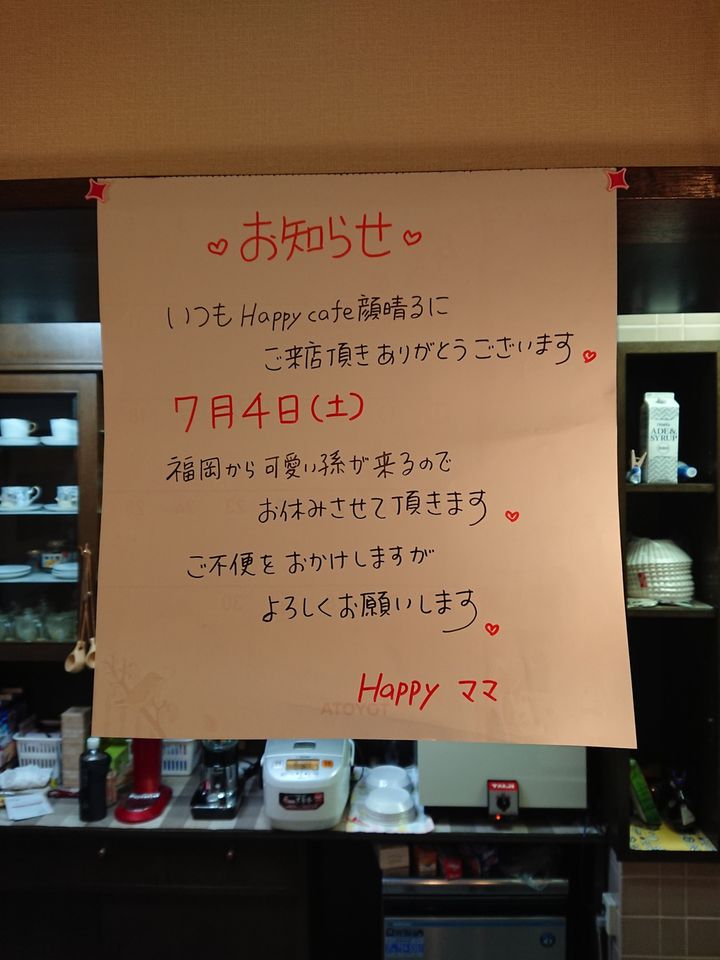 お知らせ
いつもHappy cafe顔晴るに
ご来店頂きありがとうございます
7月4日(土)
福岡から可愛い孫が来るので
お休みさせて頂きます
ご不便をおかけしますが
よろしくお願いします
Happy ママ
TOYOTA
ADE&
SYRUP
TAIJI